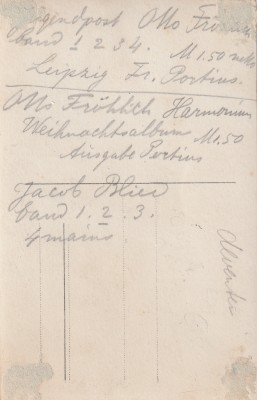 Jugendpost Otto Fröhlich
Band 1 2 3 4. M 1.50 netto
Leipzig Fr. Portius.
Otto Fröhlich Harmonium
Weihnachtsalbum M 1.50
Ausgabe Portius
Jacob Blied
band 1. 2. 3.
4 mains